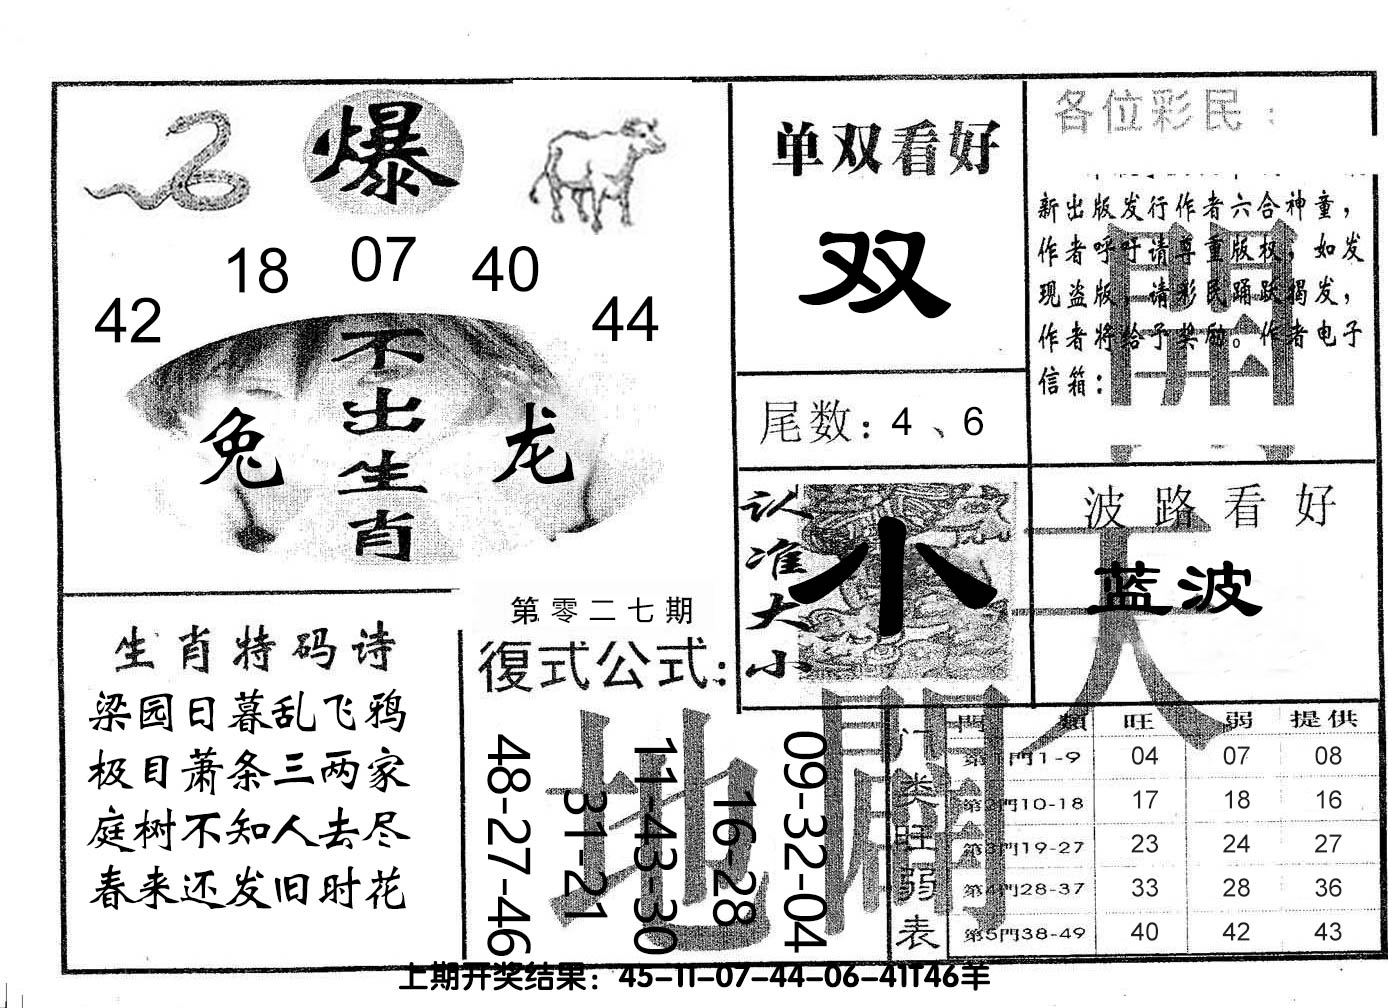 爆
18 07 40
42 44
不出生肖
兔 龙
单双看好
双
尾数：4、6
各位彩民：
新出版发行作者六合神童，
作者呼吁请尊重版权，如发
现盗版，请彩民踊跃揭发，
作者将给予奖励。作者电子
信箱：
開
认准大小
小
波路看好
蓝波
天
生肖特码诗
梁园日暮乱飞鸦
极目萧条三两家
庭树不知人去尽
春来还发旧时花
第零二七期
復式公式：
48-27-46
31-21
11-43-30
16-28
09-32-04
地
開
门类旺弱表
門類 旺 弱 提供
第1門1-9 04 07 08
第2門10-18 17 18 16
第3門19-27 23 24 27
第4門28-37 33 28 36
第5門38-49 40 42 43
上期开奖结果：45-11-07-44-06-41T46羊